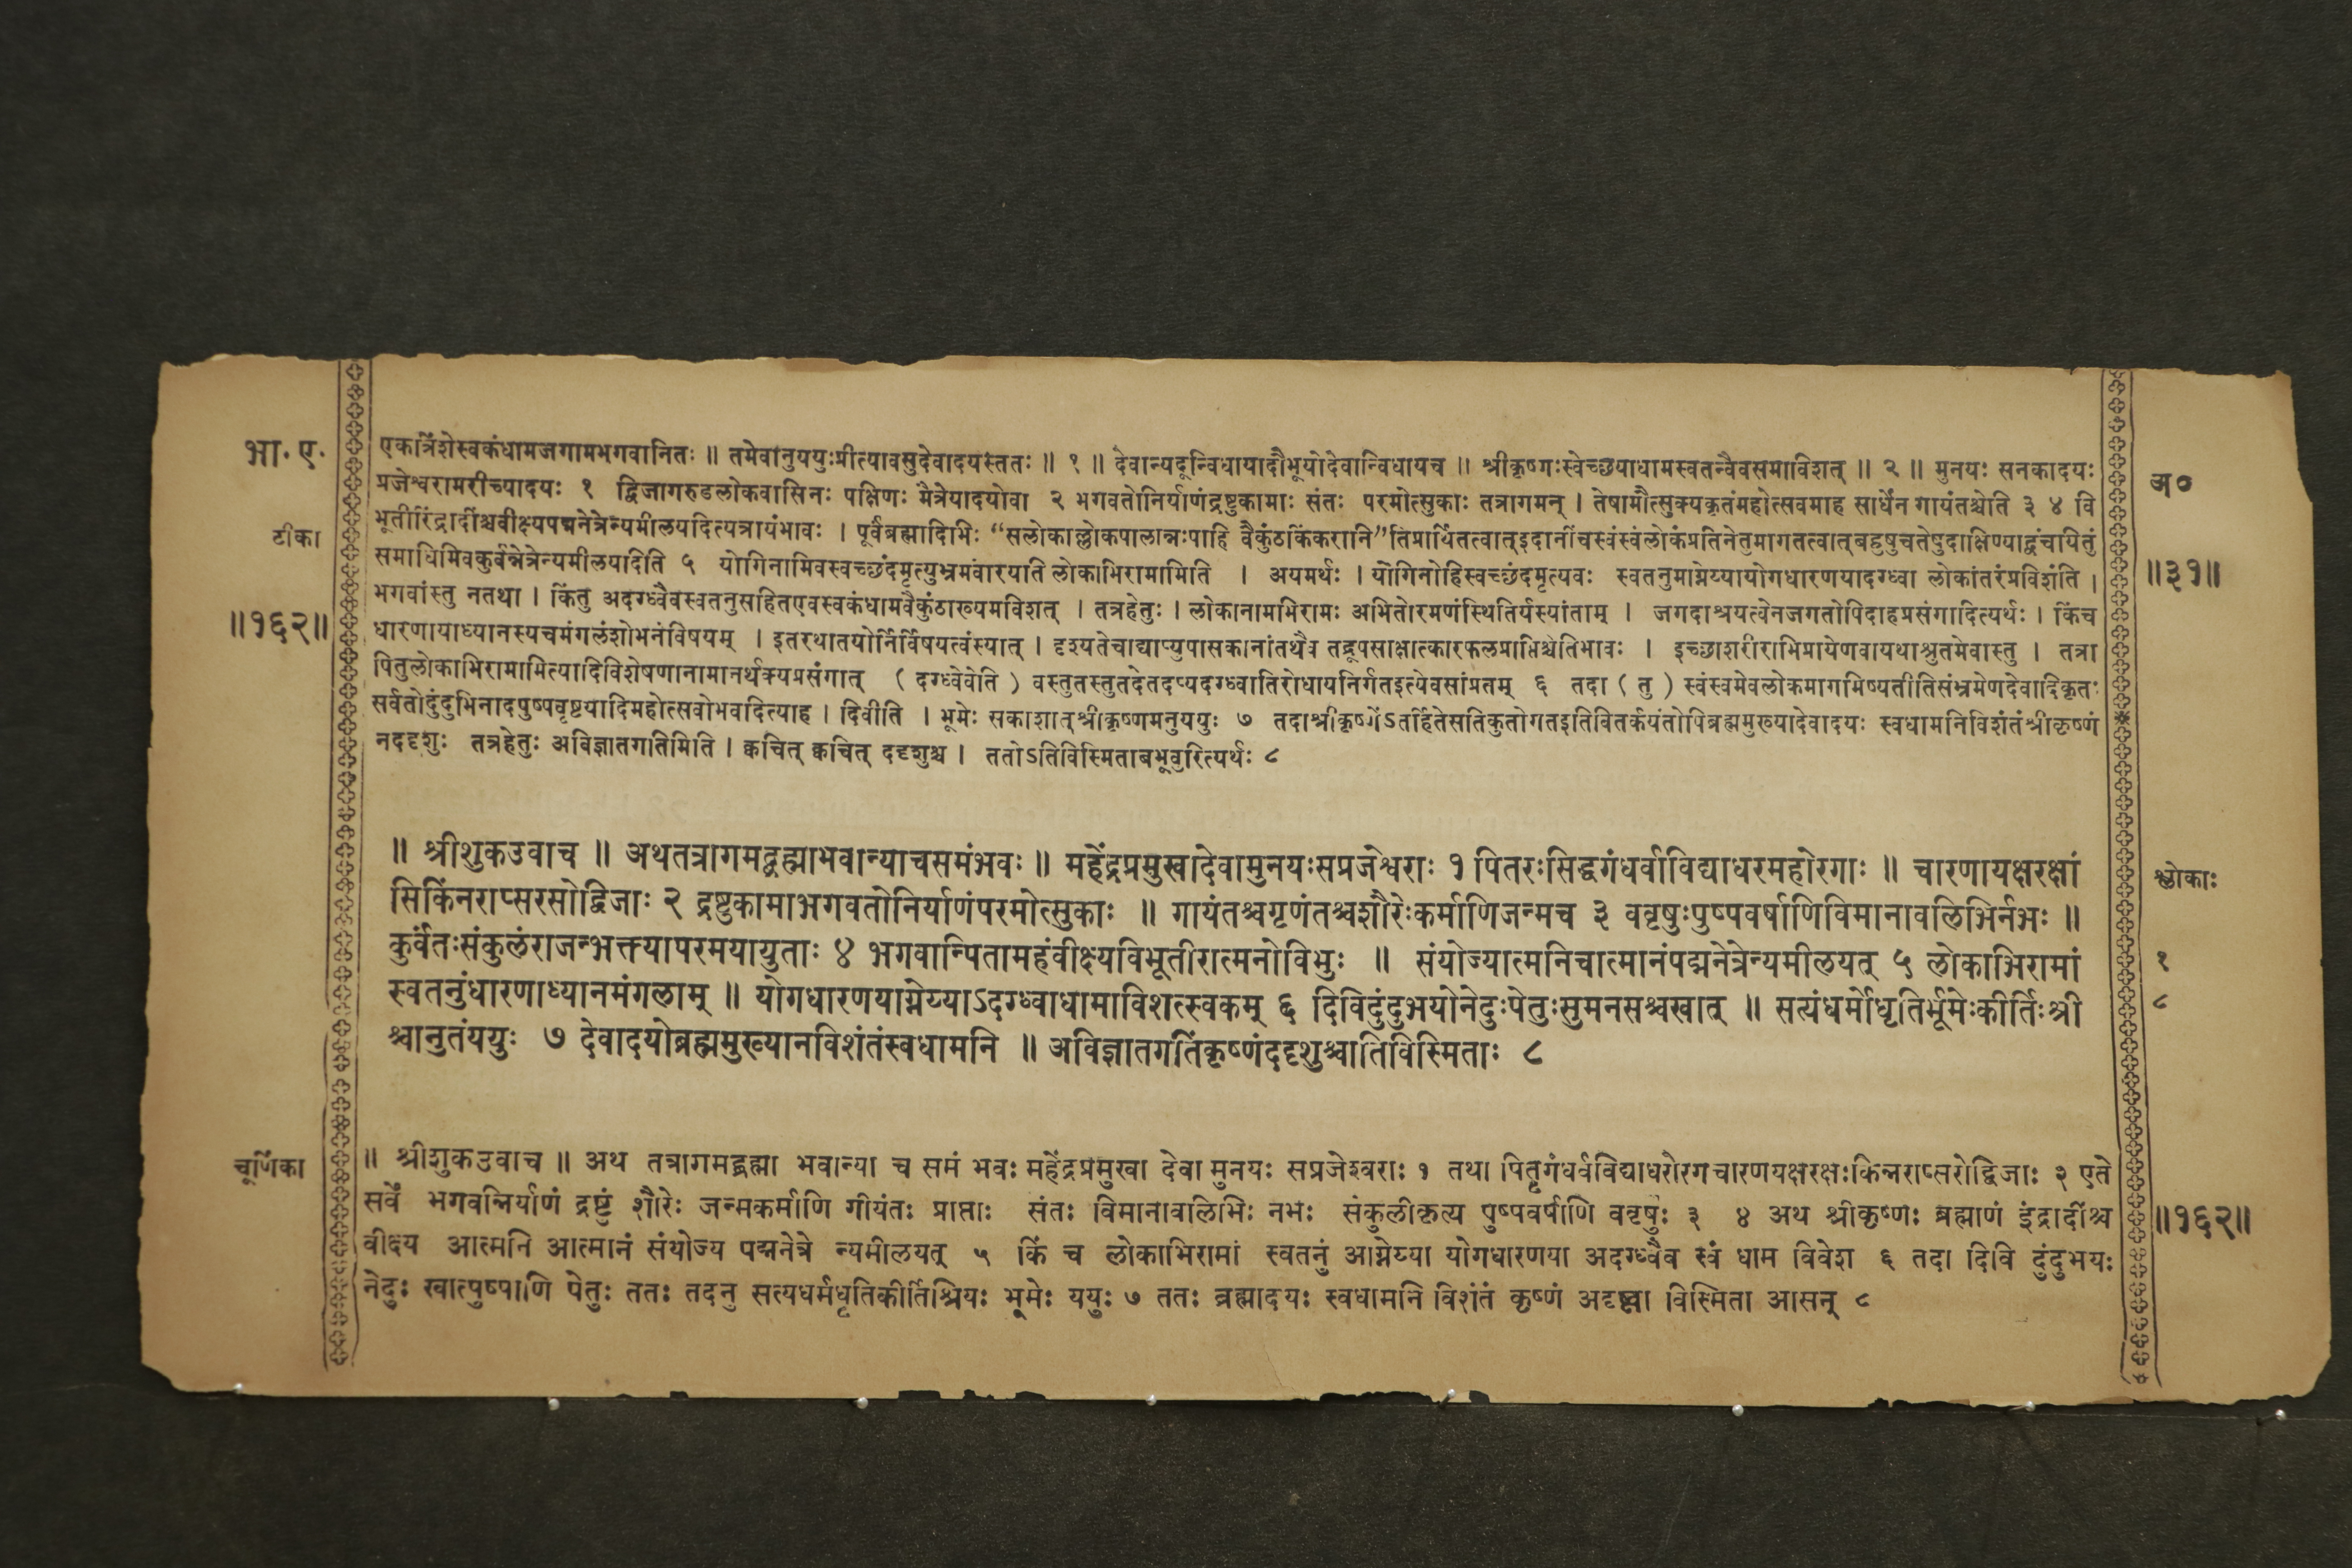 भा॰ ए॰
टीका
॥१६२॥
एकत्रिंशेस्वकंधामजगामभगवानितः ॥ तमेवानुययुःप्रीत्यावसुदेवादयस्ततः ॥ १ ॥ देवान्यदून्विधायादौभूयोदेवान्विधायच ॥ श्रीकृष्णःस्वेच्छयाधामस्वतन्वैवसमाविशत् ॥ २ ॥ मुनयः सनकादयः
प्रजेश्वरामरीच्यादयः १ द्विजागरुडलोकवासिनः पक्षिणः मैत्रेयादयोवा २ भगवतोनिर्याणंद्रष्टुकामाः संतः परमोत्सुकाः तत्रागमन् । तेषामौत्सुक्यकृतंमहोत्सवमाह सार्धेन गायंतश्चेति ३ ४ वि
भूतीरिंद्रादींश्चवीक्ष्यपद्मनेत्रेन्यमीलयदित्यत्रायंभावः । पूर्वंब्रह्मादिभिः “सलोकाल्लोकपालान्नःपाहि वैकुंठकिंकरानि”तिप्रार्थितत्वात्इदानींचस्वंस्वंलोकंप्रतिनेतुमागतत्वात्बहुषुचतेषुदाक्षिण्याद्वंचयितुं
समाधिमिवकुर्वन्नेत्रेन्यमीलयदिति ५ योगिनामिवस्वच्छंदमृत्युभ्रमंवारयति लोकाभिरामामिति । अयमर्थः । योगिनोहिस्वच्छंदमृत्यवः स्वतनुमाग्नेय्यायोगधारणयादग्ध्वा लोकांतरंप्रविशंति ।
भगवांस्तु नतथा । किंतु अदग्ध्वैवस्वतनुसहितएवस्वकंधामवैकुंठाख्यमविशत् । तत्रहेतुः । लोकानामभिरामः अभितोरमणंस्थितिर्यस्यांताम् । जगदाश्रयत्वेनजगतोपिदाहप्रसंगादित्यर्थः । किंच
धारणायाध्यानस्यचमंगलंशोभनंविषयम् । इतरथातयोर्निर्विषयत्वंस्यात् । दृश्यतेचाद्याप्युपासकानांतथैव तद्रूपसाक्षात्कारफलप्राप्तिश्चेतिभावः । इच्छाशरीराभिप्रायेणवायथाश्रुतमेवास्तु । तत्रा
पितुलोकाभिरामामित्यादिविशेषणानामानर्थक्यप्रसंगात् ( दग्ध्वेवेति ) वस्तुतस्तुतदेतदप्यदग्ध्वातिरोधायनिर्गतइत्येवसांप्रतम् ६ तदा ( तु ) स्वंस्वमेवलोकमागमिष्यतीतिसंभ्रमेणदेवादिकृतः
सर्वतोदुंदुभिनादपुष्पवृष्ट्यादिमहोत्सवोभवदित्याह । दिवीति । भूमेः सकाशात् श्रीकृष्णमनुययुः ७ तदाश्रीकृष्णेंऽतर्हितेसतिकुतोगतइतिवितर्कयंतोपिब्रह्ममुख्यादेवादयः स्वधामनिविशंतंश्रीकृष्णं
नददृशुः तत्रहेतुः अविज्ञातगतिमिति । क्वचित् क्वचित् ददृशुश्च । ततोऽतिविस्मिताबभूवुरित्यर्थः ८
अ०
॥३१॥
॥ श्रीशुकउवाच ॥ अथतत्रागमद्ब्रह्माभवान्याचसमंभवः ॥ महेंद्रप्रमुखादेवामुनयःसप्रजेश्वराः १ पितरःसिद्धगंधर्वाविद्याधरमहोरगाः ॥ चारणायक्षरक्षां
सिकिंनराप्सरसोद्विजाः २ द्रष्टुकामाभगवतोनिर्याणंपरमोत्सुकाः ॥ गायंतश्चगृणंतश्चशौरेःकर्माणिजन्मच ३ ववृषुःपुष्पवर्षाणिविमानावलिभिर्नभः ॥
कुर्वंतःसंकुलंराजन्भक्त्यापरमयायुताः ४ भगवान्पितामहंवीक्ष्यविभूतीरात्मनोविभुः ॥ संयोज्यात्मनिचात्मानंपद्मनेत्रेन्यमीलयत् ५ लोकाभिरामां
स्वतनुंधारणाध्यानमंगलाम् ॥ योगधारणयाग्नेय्याऽदग्ध्वाधामाविशत्स्वकम् ६ दिविदुंदुभयोनेदुःपेतुःसुमनसश्चखात् ॥ सत्यंधर्मोधृतिर्भूमेःकीर्तिःश्री
श्चानुतंययुः ७ देवादयोब्रह्ममुख्यानविशंतंस्वधामनि ॥ अविज्ञातगतिंकृष्णंददृशुश्चातिविस्मिताः ८
श्लोकाः
१
८
चूर्णिका
॥ श्रीशुकउवाच ॥ अथ तत्रागमद्ब्रह्मा भवान्या च समं भवः महेंद्रप्रमुखा देवा मुनयः सप्रजेश्वराः १ तथा पितृगंधर्वविद्याधरोरगचारणयक्षरक्षःकिन्नराप्सरोद्विजाः २ एते
सर्वे भगवन्निर्याणं द्रष्टुं शौरेः जन्मकर्माणि गीयंतः प्राप्ताः संतः विमानावलिभिः नभः संकुलीकृत्य पुष्पवर्षाणि ववृषुः ३ ४ अथ श्रीकृष्णः ब्रह्माणं इंद्रादींश्च
वीक्ष्य आत्मनि आत्मानं संयोज्य पद्मनेत्रे न्यमीलयत् ५ किं च लोकाभिरामां स्वतनुं आग्नेय्या योगधारणया अदग्ध्वैव स्वं धाम विवेश ६ तदा दिवि दुंदुभयः
नेदुः खात्पुष्पाणि पेतुः ततः तदनु सत्यधर्मधृतिकीर्तिश्रियः भूमेः ययुः ७ ततः ब्रह्मादयः स्वधामनि विशंतं कृष्णं अदृष्ट्वा विस्मिता आसन् ८
॥१६२॥